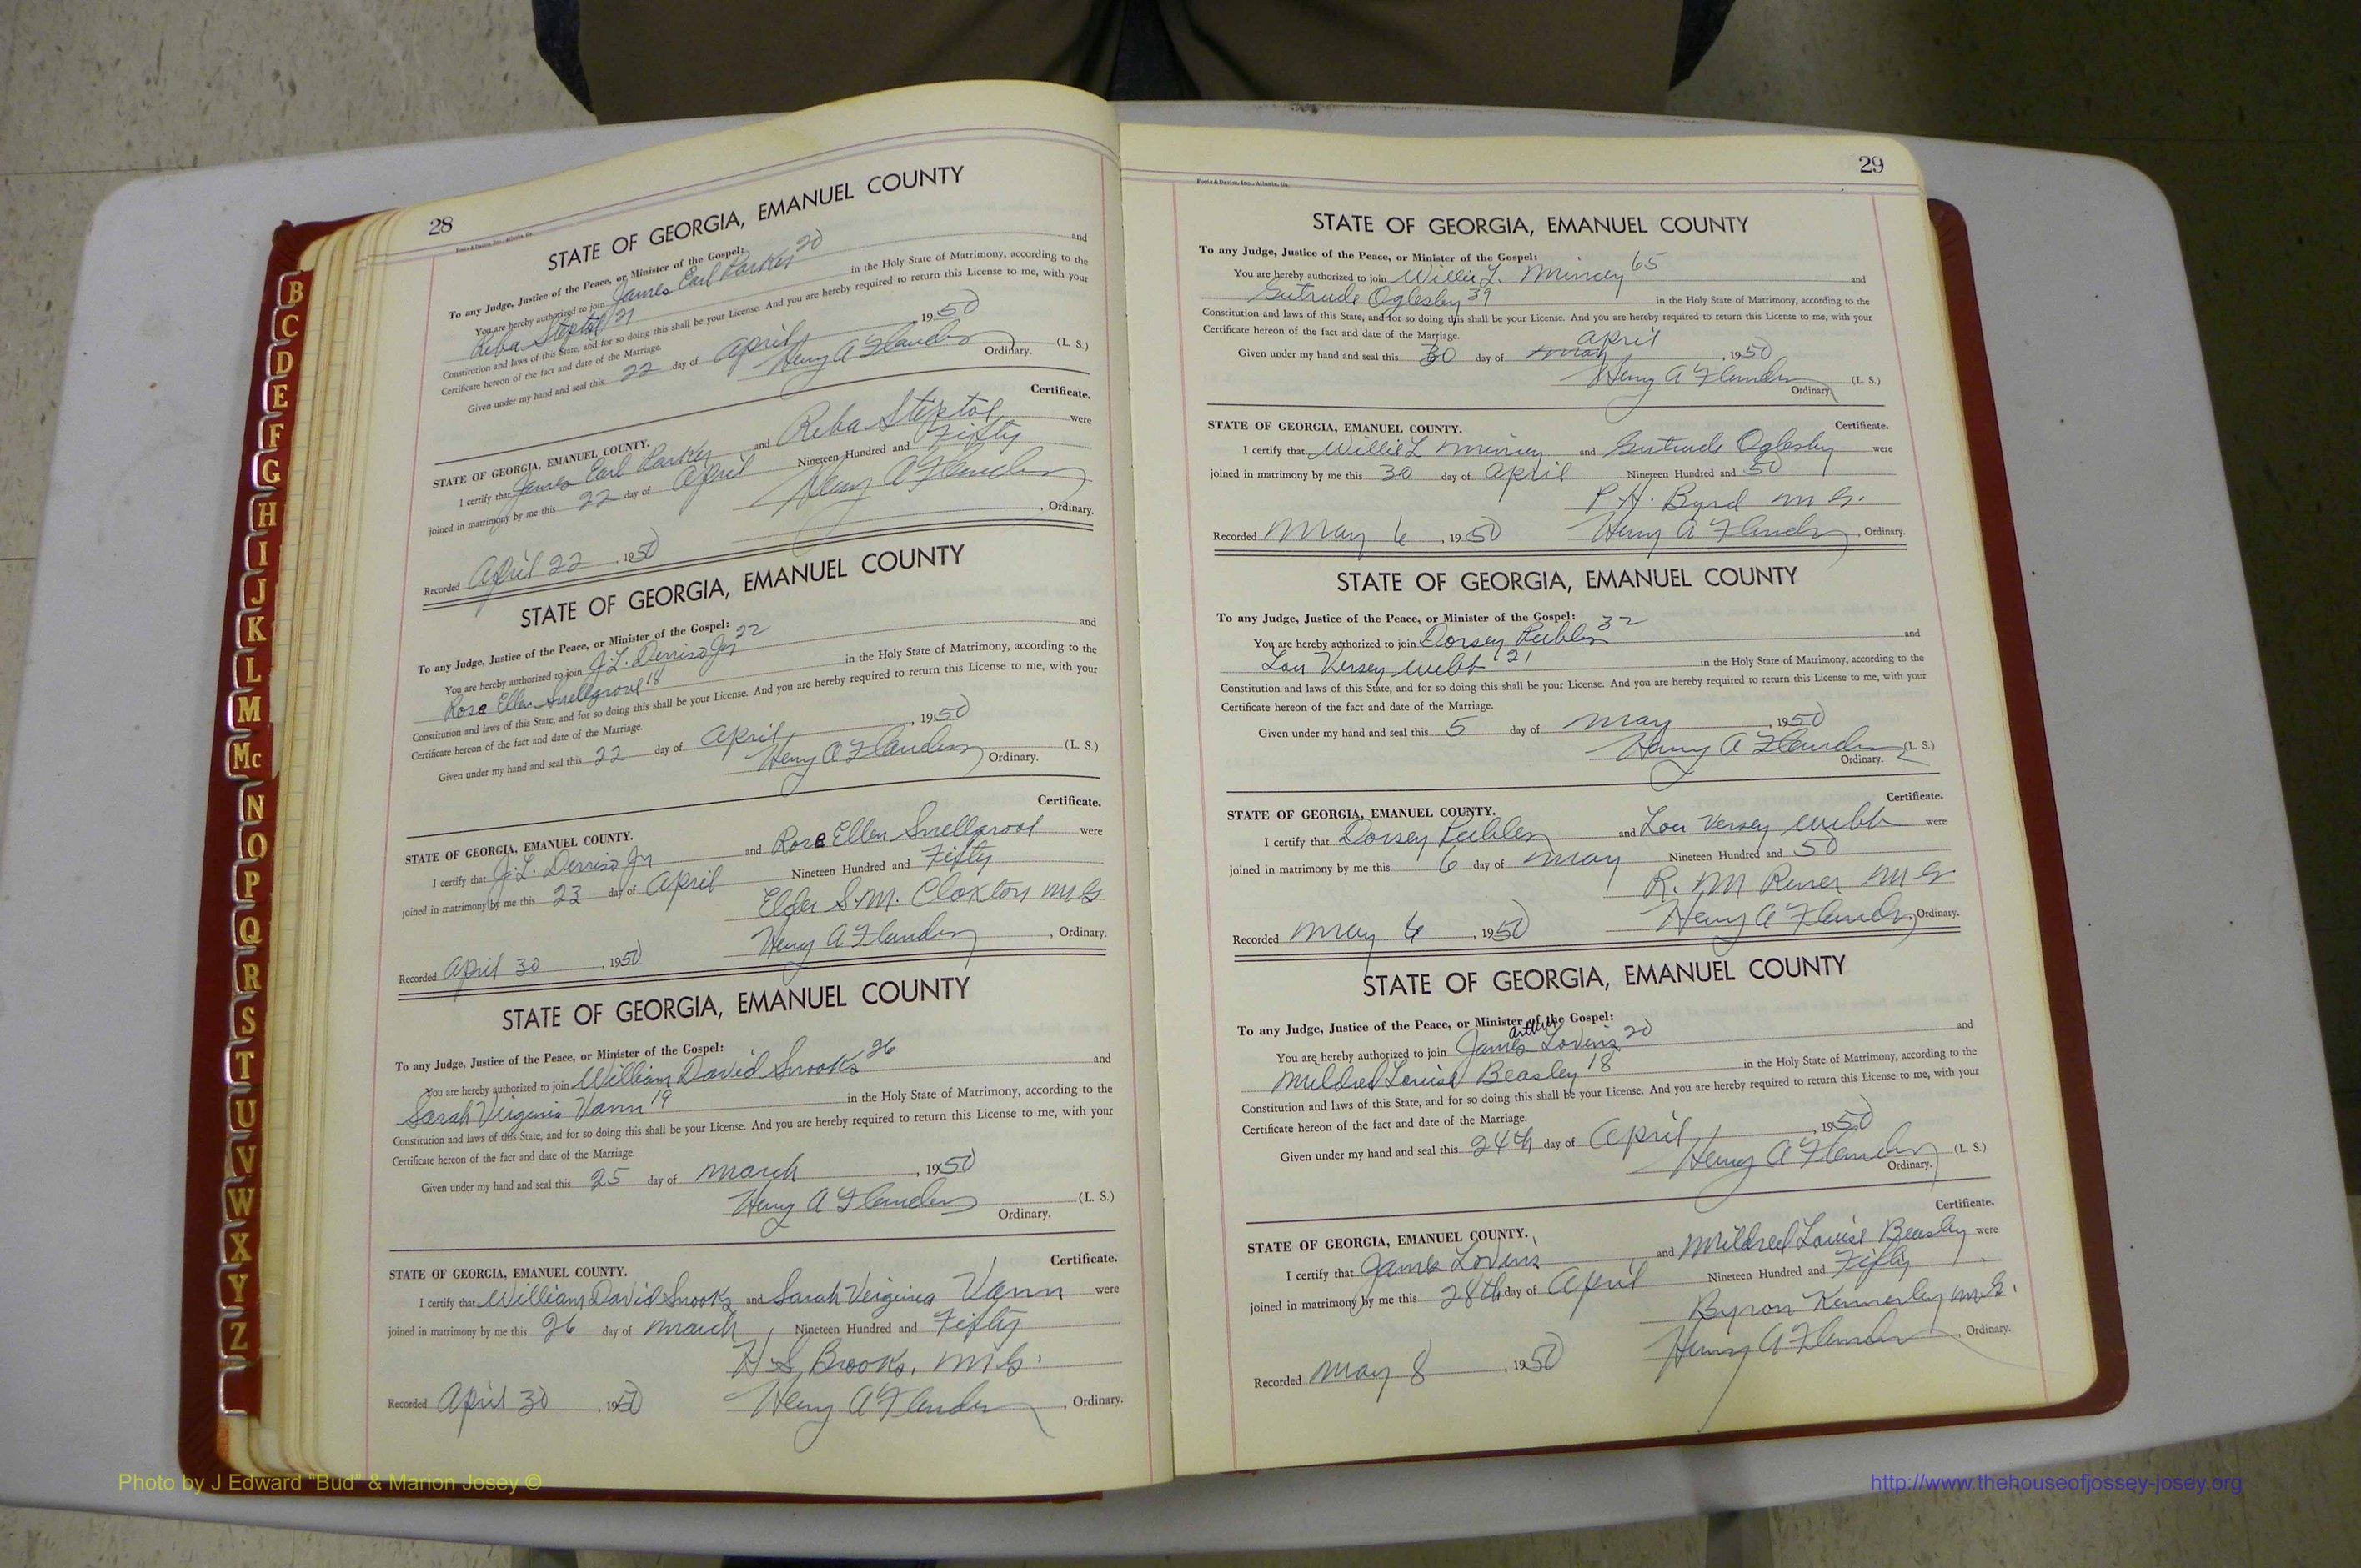 28
Foote & Davies, Inc., Atlanta, Ga.
STATE OF GEORGIA, EMANUEL COUNTY
To any Judge, Justice of the Peace, or Minister of the Gospel:
You are hereby authorized to join James Earl Parker 20 and
Reba Steptoe 21 in the Holy State of Matrimony, according to the
Constitution and laws of this State, and for so doing this shall be your License. And you are hereby required to return this License to me, with your
Certificate hereon of the fact and date of the Marriage.
Given under my hand and seal this 22 day of April, 1950
Henry A Flanders (L. S.)
Ordinary.
Certificate.
STATE OF GEORGIA, EMANUEL COUNTY.
I certify that James Earl Parker and Reba Steptoe were
joined in matrimony by me this 22 day of April Nineteen Hundred and Fifty
Henry A Flanders
Recorded April 22, 1950 , Ordinary.
STATE OF GEORGIA, EMANUEL COUNTY
To any Judge, Justice of the Peace, or Minister of the Gospel:
You are hereby authorized to join J. L. Derriso Jr 22 and
Rose Ellen Snellgrove 18 in the Holy State of Matrimony, according to the
Constitution and laws of this State, and for so doing this shall be your License. And you are hereby required to return this License to me, with your
Certificate hereon of the fact and date of the Marriage.
Given under my hand and seal this 22 day of April, 1950
Henry A Flanders (L. S.)
Ordinary.
Certificate.
STATE OF GEORGIA, EMANUEL COUNTY.
I certify that J. L. Derriso Jr and Rose Ellen Snellgrove were
joined in matrimony by me this 23 day of April Nineteen Hundred and Fifty
Elder S. M. Claxton M G
Henry A Flanders, Ordinary.
Recorded April 30, 1950
STATE OF GEORGIA, EMANUEL COUNTY
To any Judge, Justice of the Peace, or Minister of the Gospel:
You are hereby authorized to join William David Snooks 26 and
Sarah Virginia Vann 19 in the Holy State of Matrimony, according to the
Constitution and laws of this State, and for so doing this shall be your License. And you are hereby required to return this License to me, with your
Certificate hereon of the fact and date of the Marriage.
Given under my hand and seal this 25 day of March, 1950
Henry A Flanders (L. S.)
Ordinary.
Certificate.
STATE OF GEORGIA, EMANUEL COUNTY.
I certify that William David Snooks and Sarah Virginia Vann were
joined in matrimony by me this 26 day of March, Nineteen Hundred and Fifty
H S Brooks, M G.
Recorded April 30, 1950 Henry A Flanders, Ordinary.
29
Foote & Davies, Inc., Atlanta, Ga.
STATE OF GEORGIA, EMANUEL COUNTY
To any Judge, Justice of the Peace, or Minister of the Gospel:
You are hereby authorized to join Willie L. Mincey 65 and
Gutrude Oglesby 39 in the Holy State of Matrimony, according to the
Constitution and laws of this State, and for so doing this shall be your License. And you are hereby required to return this License to me, with your
Certificate hereon of the fact and date of the Marriage.
April
Given under my hand and seal this 30 day of May, 1950
Henry A Flanders (L. S.)
Ordinary.
Certificate.
STATE OF GEORGIA, EMANUEL COUNTY.
I certify that Willie L Mincey and Gutrude Oglesby were
joined in matrimony by me this 30 day of April Nineteen Hundred and 50
P. H. Byrd M G.
Recorded May 6, 1950 Henry A Flanders, Ordinary.
STATE OF GEORGIA, EMANUEL COUNTY
To any Judge, Justice of the Peace, or Minister of the Gospel:
You are hereby authorized to join Dorsey Peebles 32 and
Lou Versey Webb 21 in the Holy State of Matrimony, according to the
Constitution and laws of this State, and for so doing this shall be your License. And you are hereby required to return this License to me, with your
Certificate hereon of the fact and date of the Marriage.
Given under my hand and seal this 5 day of May, 1950
Henry A Flanders (L. S.)
Ordinary.
Certificate.
STATE OF GEORGIA, EMANUEL COUNTY.
I certify that Dorsey Peebles and Lou Versey Webb were
joined in matrimony by me this 6 day of May Nineteen Hundred and 50
R. M M G
Recorded May 6, 1950 Henry A Flanders, Ordinary.
STATE OF GEORGIA, EMANUEL COUNTY
To any Judge, Justice of the Peace, or Minister of the Gospel:
Arthur
You are hereby authorized to join James Lovins 20 and
Mildred Louise Beasley 18 in the Holy State of Matrimony, according to the
Constitution and laws of this State, and for so doing this shall be your License. And you are hereby required to return this License to me, with your
Certificate hereon of the fact and date of the Marriage.
Given under my hand and seal this 24th day of April, 1950
Henry A Flanders (L. S.)
Ordinary.
Certificate.
STATE OF GEORGIA, EMANUEL COUNTY.
I certify that James Lovins and Mildred Louise Beasley were
joined in matrimony by me this 28th day of April Nineteen Hundred and Fifty
Byron Kennerley M G.
Henry A Flanders, Ordinary.
Recorded May 8, 1950
B
C
D
E
F
G
H
I
J
K
L
M
Mc
N
O
P
Q
R
S
T
U
V
W
X
Y
Z
Photo by J Edward "Bud" & Marion Josey ©
http://www.thehouseofjossey-josey.org